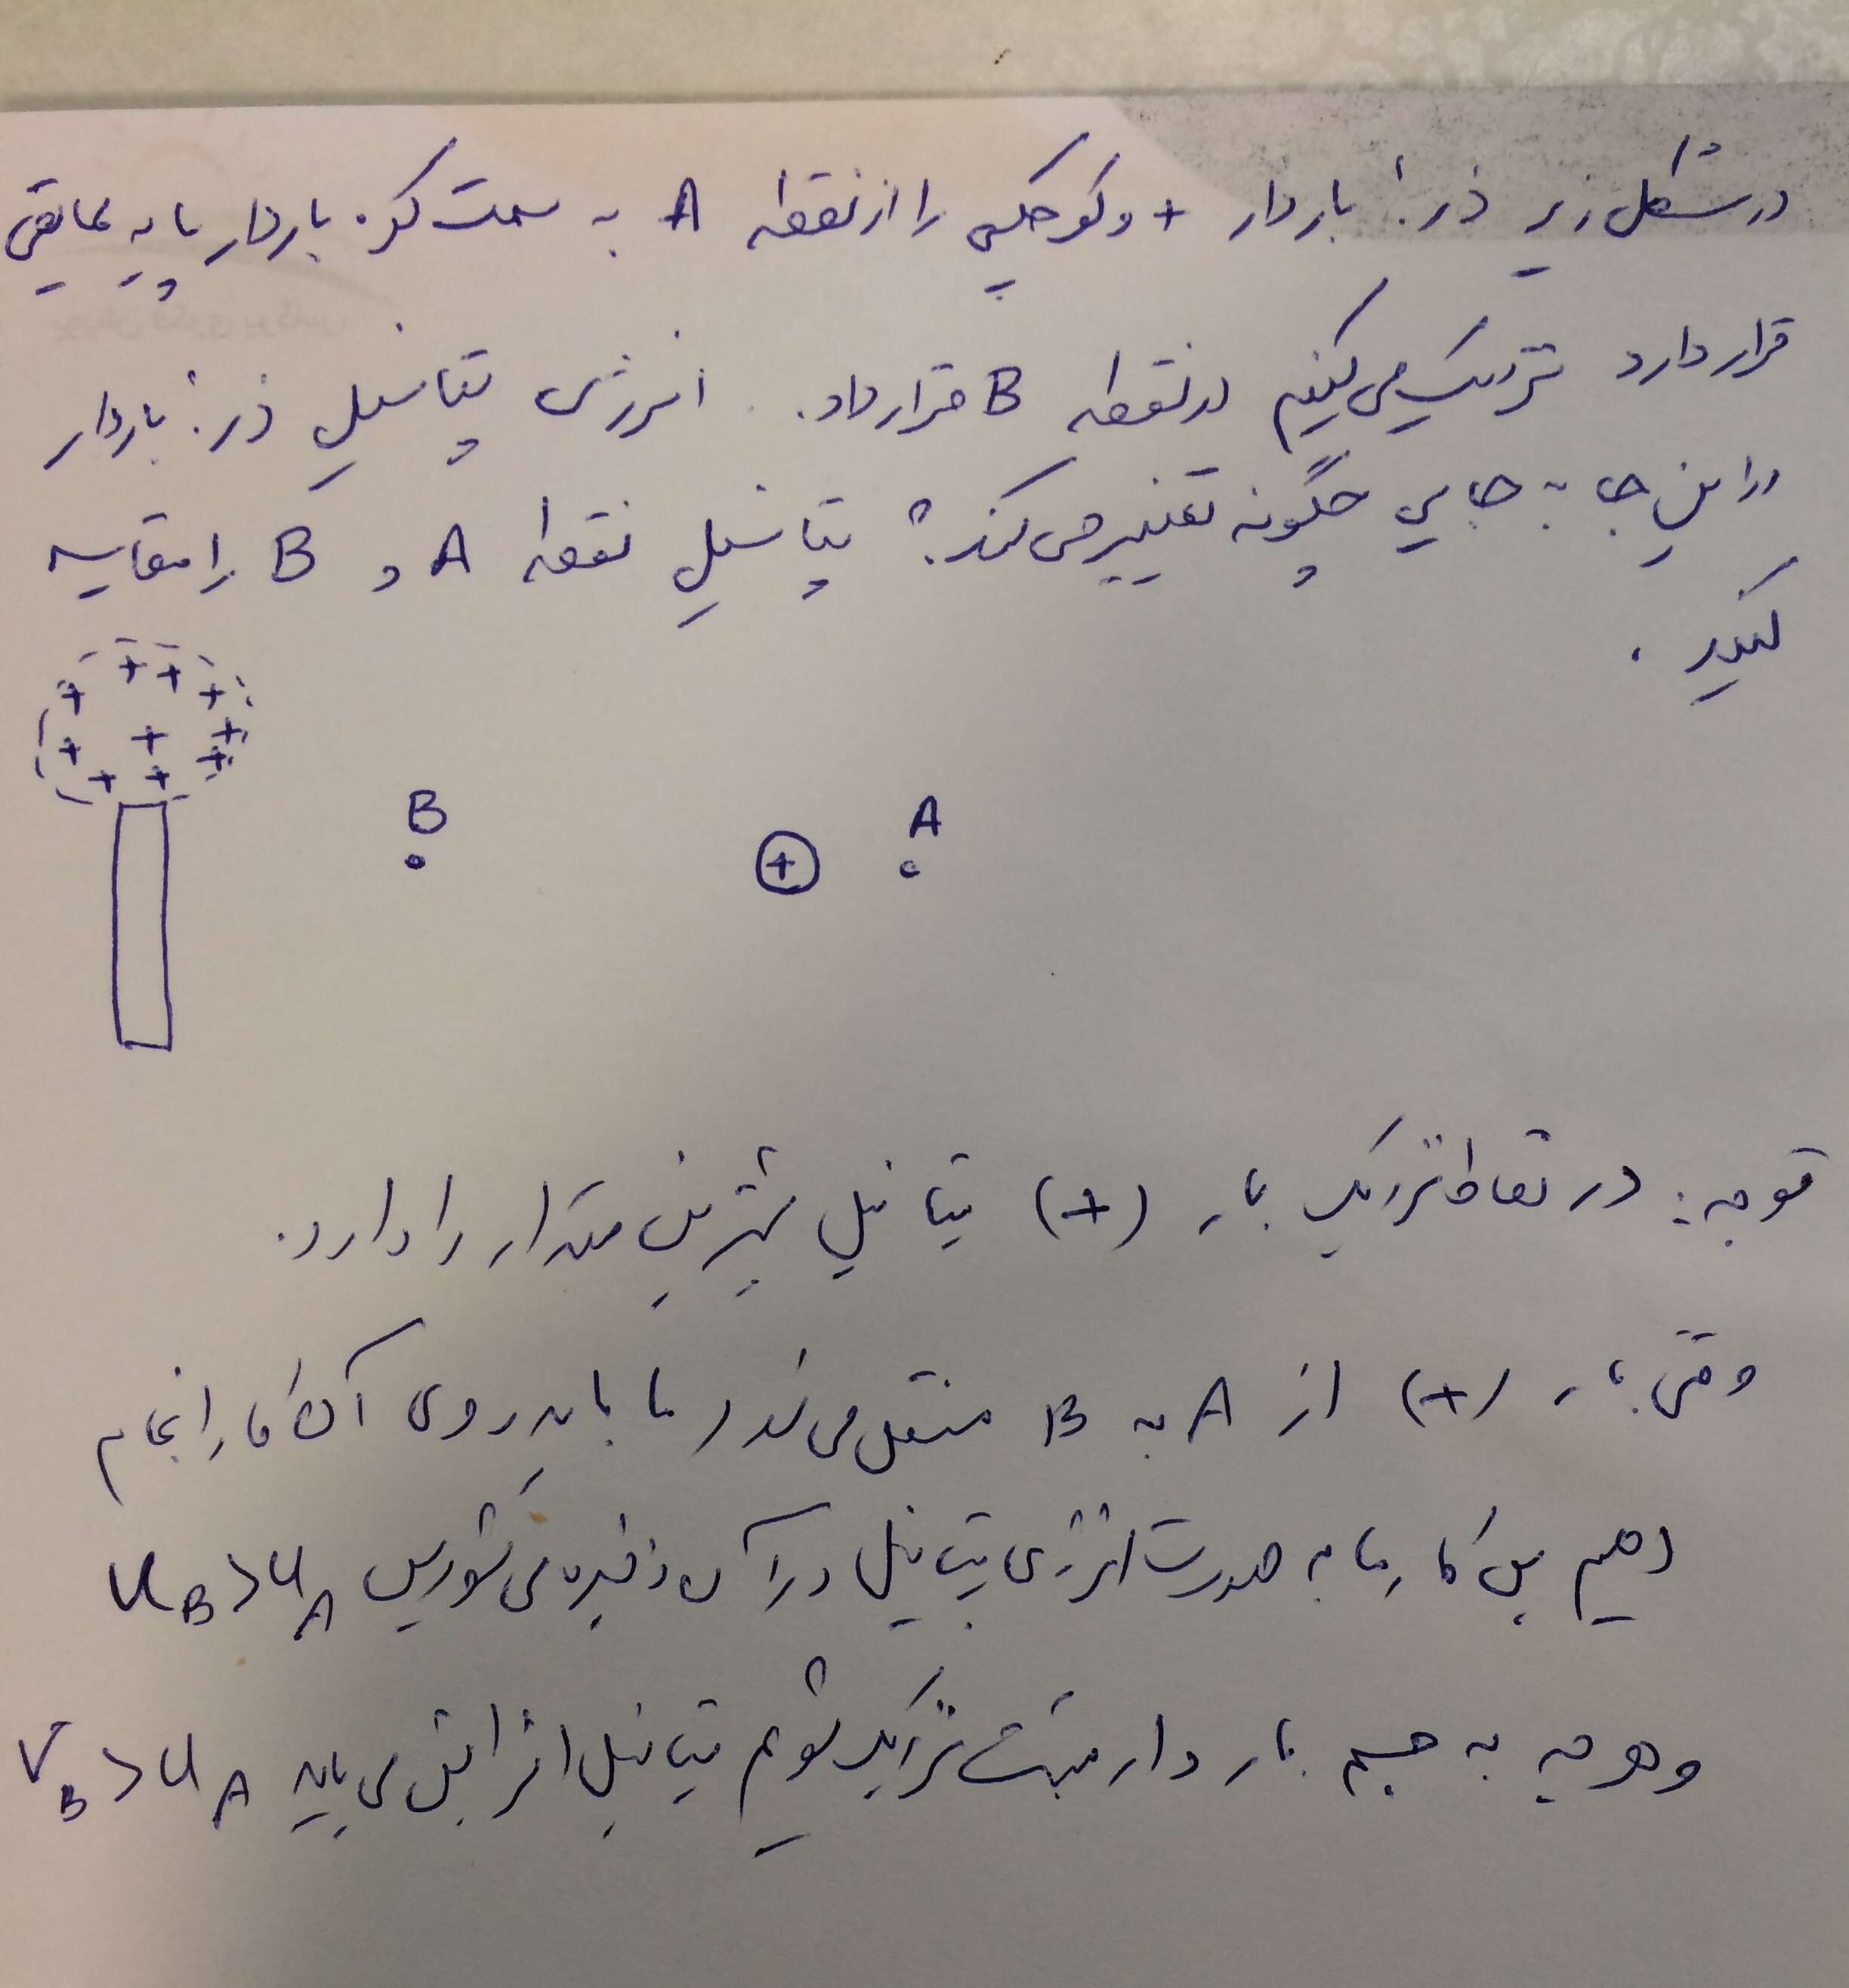 در شکل زیر ذرهٔ باردار + و کوچکی را از نقطه A به سمت کره باردار با پایه عایقی
قرار دارد نزدیک می کنیم در نقطه B قرار داد. انرژی پتانسیل ذرهٔ باردار
در این جا به جایی چگونه تغییر می کند؟ پتانسیل نقطه A و B را مقایسه
کنید.
+ + + + + + + + + + +
B
A
+
توجه: در نقاط نزدیک بار (+) پتانسیل بیشترین مقدار را دارد.
وقتی بار (+) از A به B منتقل می شود ما باید روی آن کار انجام
دهیم پس کار ما به صورت انرژی پتانسیل در آن ذخیره می شود پس U_B > U_A
و هرچه به جسم باردار مثبت نزدیک شویم پتانسیل افزایش می یابد V_B > U_A